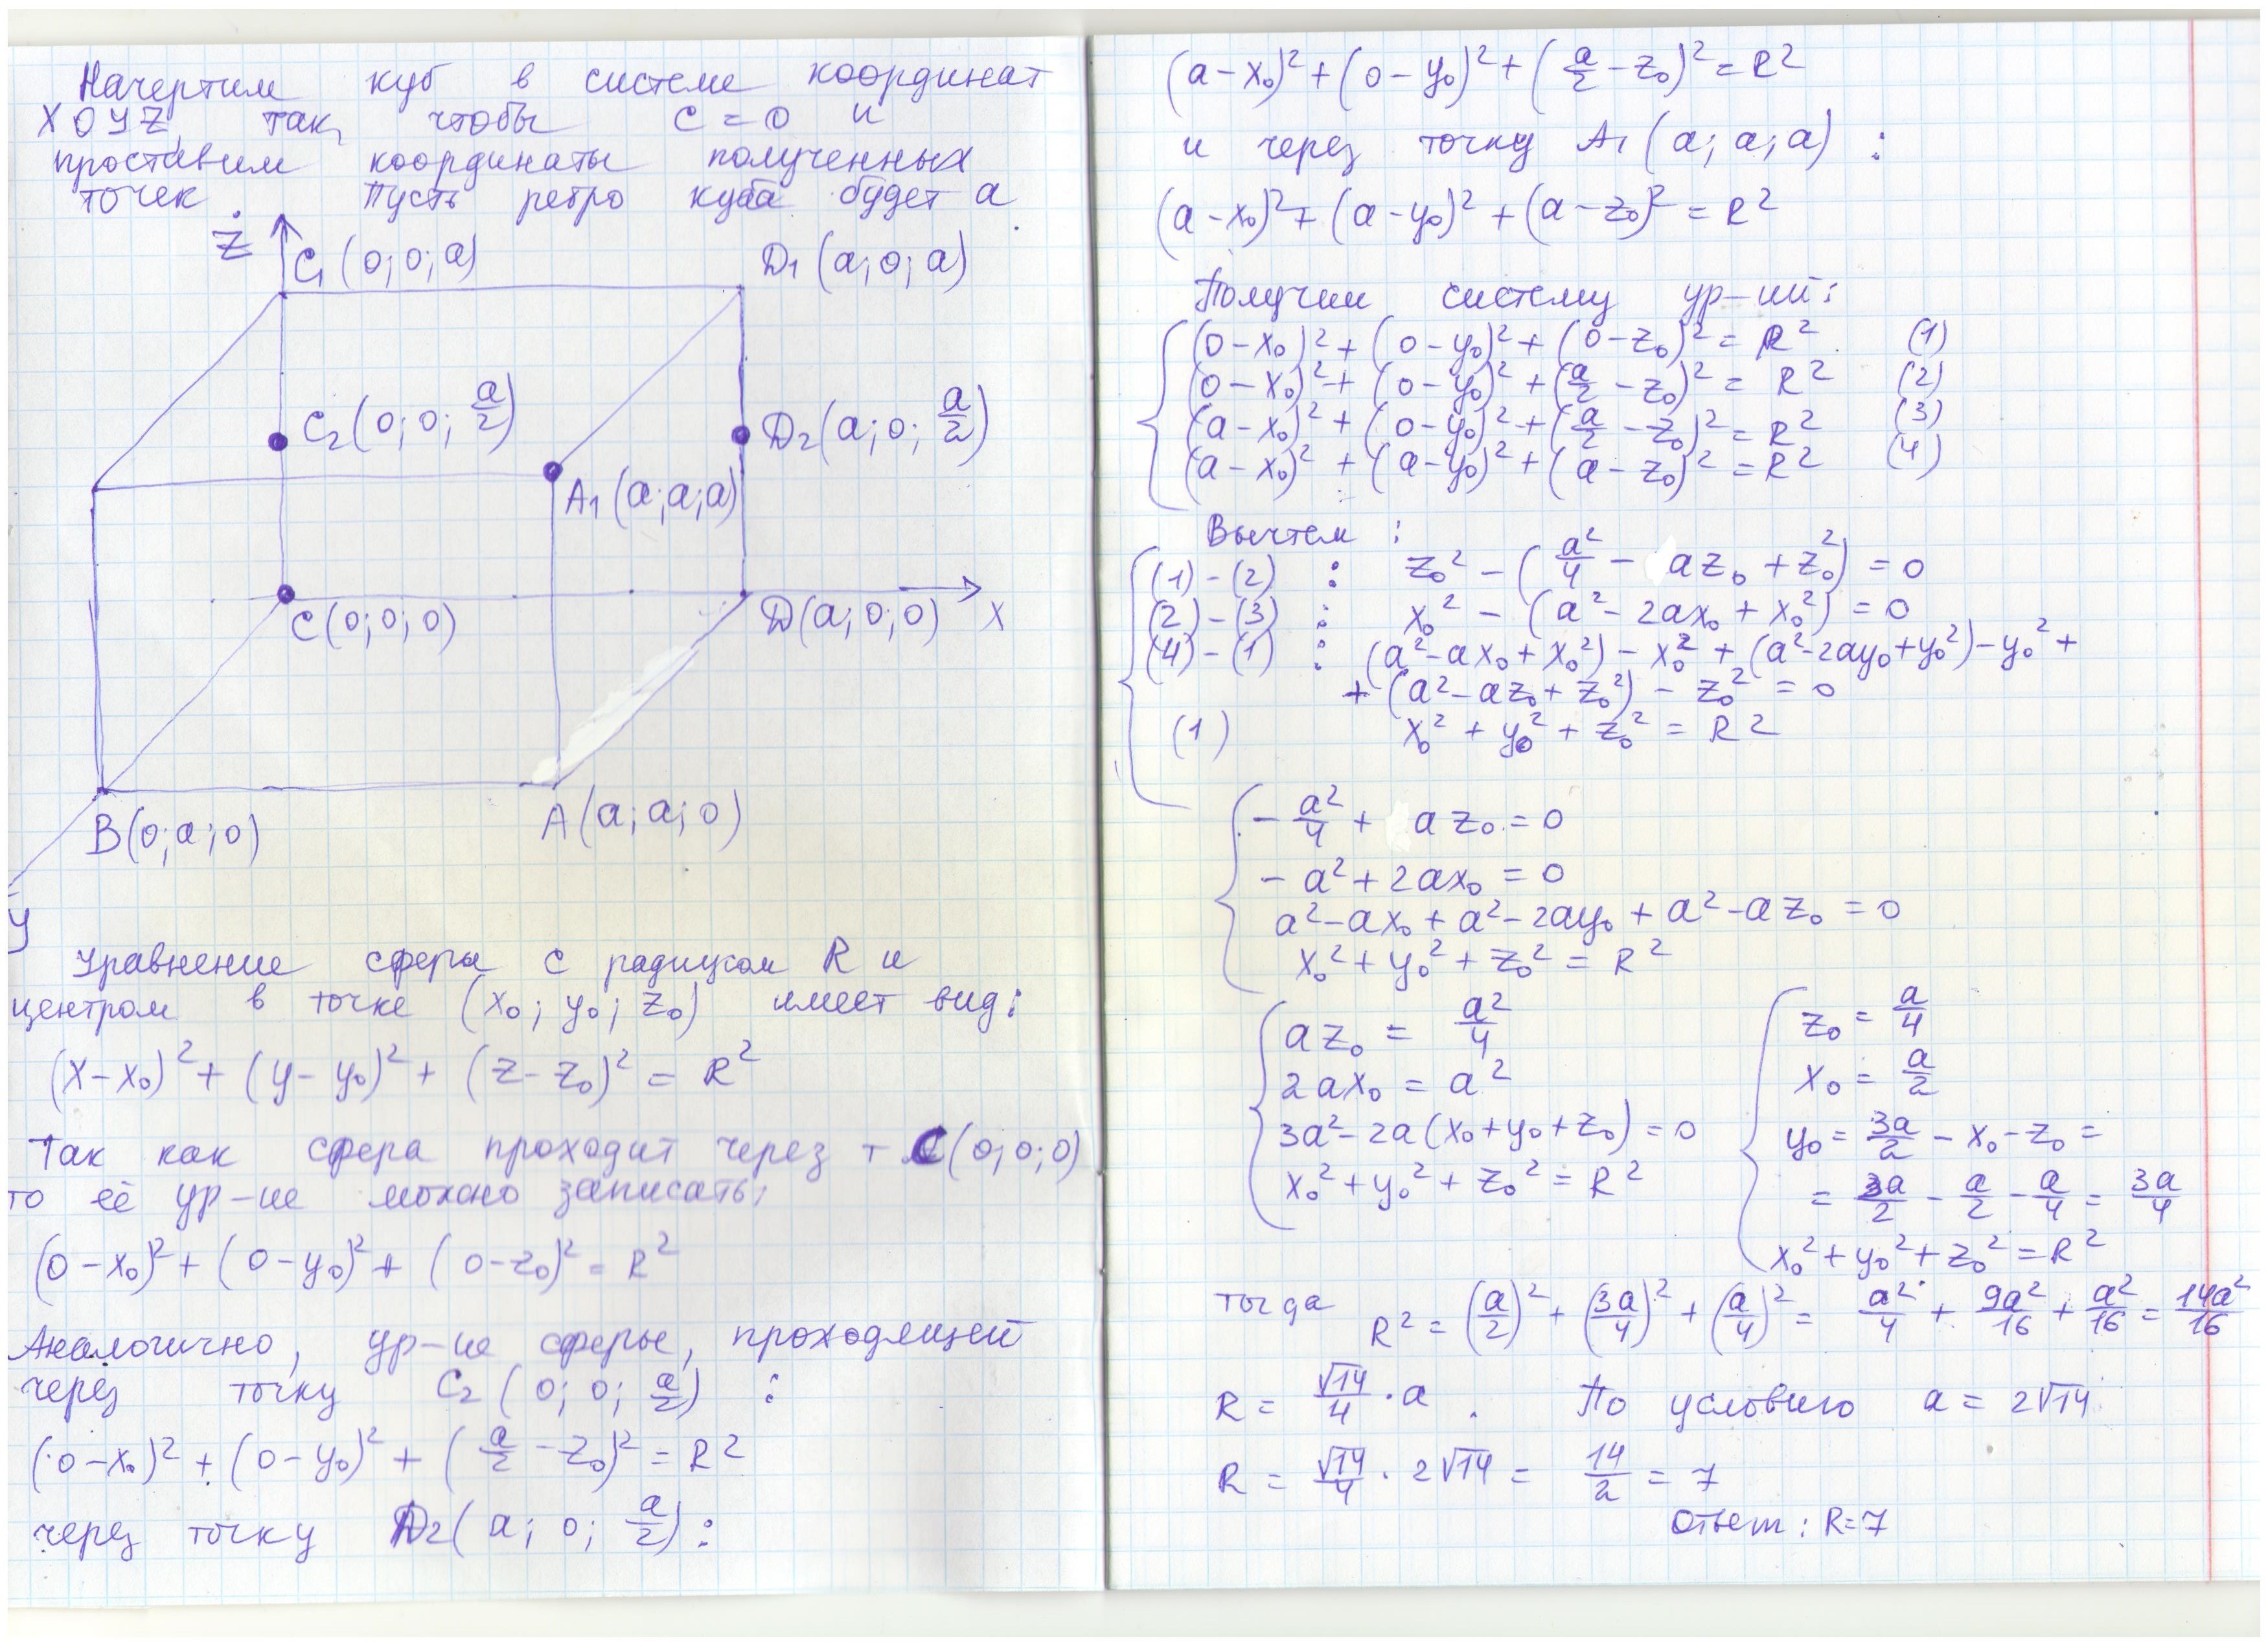 Начертим куб в системе координат
XOYZ, так, чтобы C = 0 и
проставим координаты полученных
точек. Пусть ребро куба будет a
Z
C₁ (0; 0; a)
D₁ (a; 0; a)
C₂ (0; 0; a/2)
D₂ (a; 0; a/2)
A₁ (a; a; a)
C (0; 0; 0)
D (a; 0; 0)
X
B (0; a; 0)
A (a; a; 0)
y
Уравнение сферы с радиусом R и
центром в точке (x₀; y₀; z₀) имеет вид:
(x-x₀)² + (y-y₀)² + (z-z₀)² = R²
Так как сфера проходит через т C(0; 0; 0)
то её ур-ие можно записать:
(0-x₀)² + (0-y₀)² + (0-z₀)² = R²
Аналогично, ур-ие сферы, проходящей
через точку C₂ (0; 0; a/2) :
(0-x₀)² + (0-y₀)² + (a/2 - z₀)² = R²
через точку D₂ (a; 0; a/2) :
(a-x₀)² + (0-y₀)² + (a/2 - z₀)² = R²
и через точку A₁ (a; a; a) :
(a-x₀)² + (a-y₀)² + (a-z₀)² = R²
Получим систему ур-ий:
(0-x₀)² + (0-y₀)² + (0-z₀)² = R² (1)
(0-x₀)² + (0-y₀)² + (a/2 - z₀)² = R² (2)
(a-x₀)² + (0-y₀)² + (a/2 - z₀)² = R² (3)
(a-x₀)² + (a-y₀)² + (a-z₀)² = R² (4)
Вычтем :
(1)-(2) : z₀² - (a²/4 - az₀ + z₀²) = 0
(2)-(3) : x₀² - (a² - 2ax₀ + x₀²) = 0
(4)-(1) : (a²-ax₀+x₀²) - x₀² + (a²-2ay₀+y₀²) - y₀² +
+ (a²-az₀+z₀²) - z₀² = 0
(1) x₀² + y₀² + z₀² = R²
- a²/4 + az₀ = 0
- a² + 2ax₀ = 0
a²-ax₀ + a²-2ay₀ + a²-az₀ = 0
x₀² + y₀² + z₀² = R²
az₀ = a²/4
2ax₀ = a²
3a²-2a(x₀+y₀+z₀) = 0
x₀² + y₀² + z₀² = R²
z₀ = a/4
x₀ = a/2
y₀ = 3a/2 - x₀ - z₀ =
= 3a/2 - a/2 - a/4 = 3a/4
x₀² + y₀² + z₀² = R²
тогда R² = (a/2)² + (3a/4)² + (a/4)² = a²/4 + 9a²/16 + a²/16 = 14a²/16
R = √14/4 · a . По условию a = 2√14
R = √14/4 · 2√14 = 14/2 = 7
Ответ: R=7